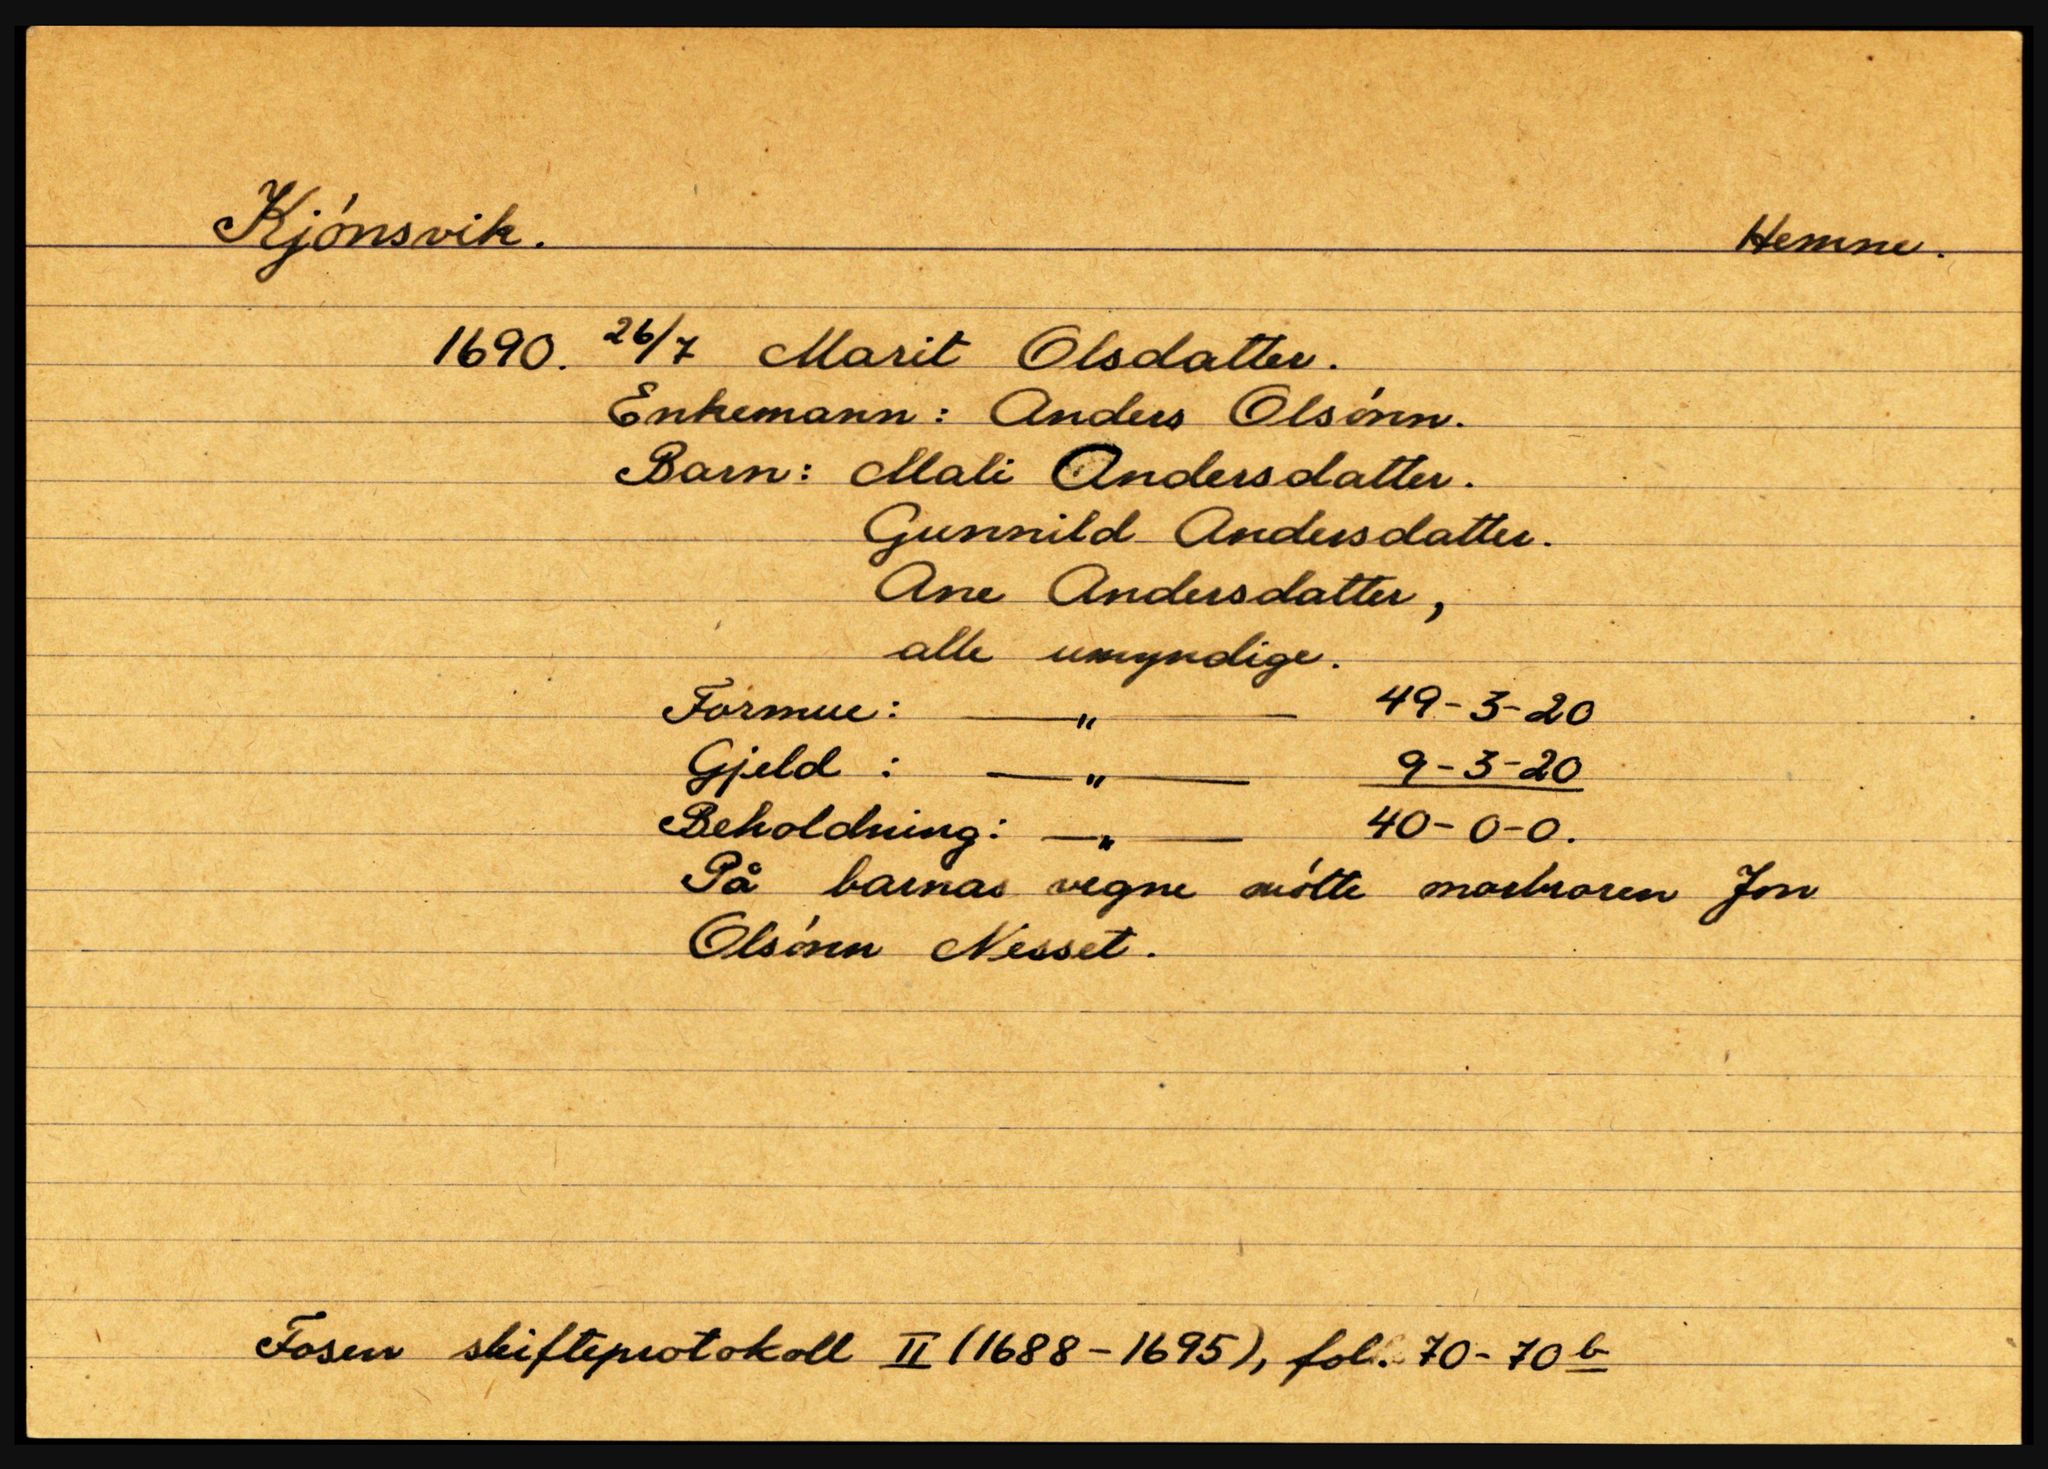 Kjónsvik. Hemne.
1690. 26/7 Marit Olsdatter.
Enkemann: Anders Olsónn.
Barn: Mali Andersdatter.
Gunnild Andersdatter.
Ane Andersdatter,
alle umyndige.
Formue: — " — 49-3-20
Gjeld : — " — 9-3-20
Beholdning: — " — 40-0-0.
På barnas vegne mótte morbroren Jon
Olsónn Nesset.
Fosen skifteprotokoll II (1688-1695), fol. 70-70b